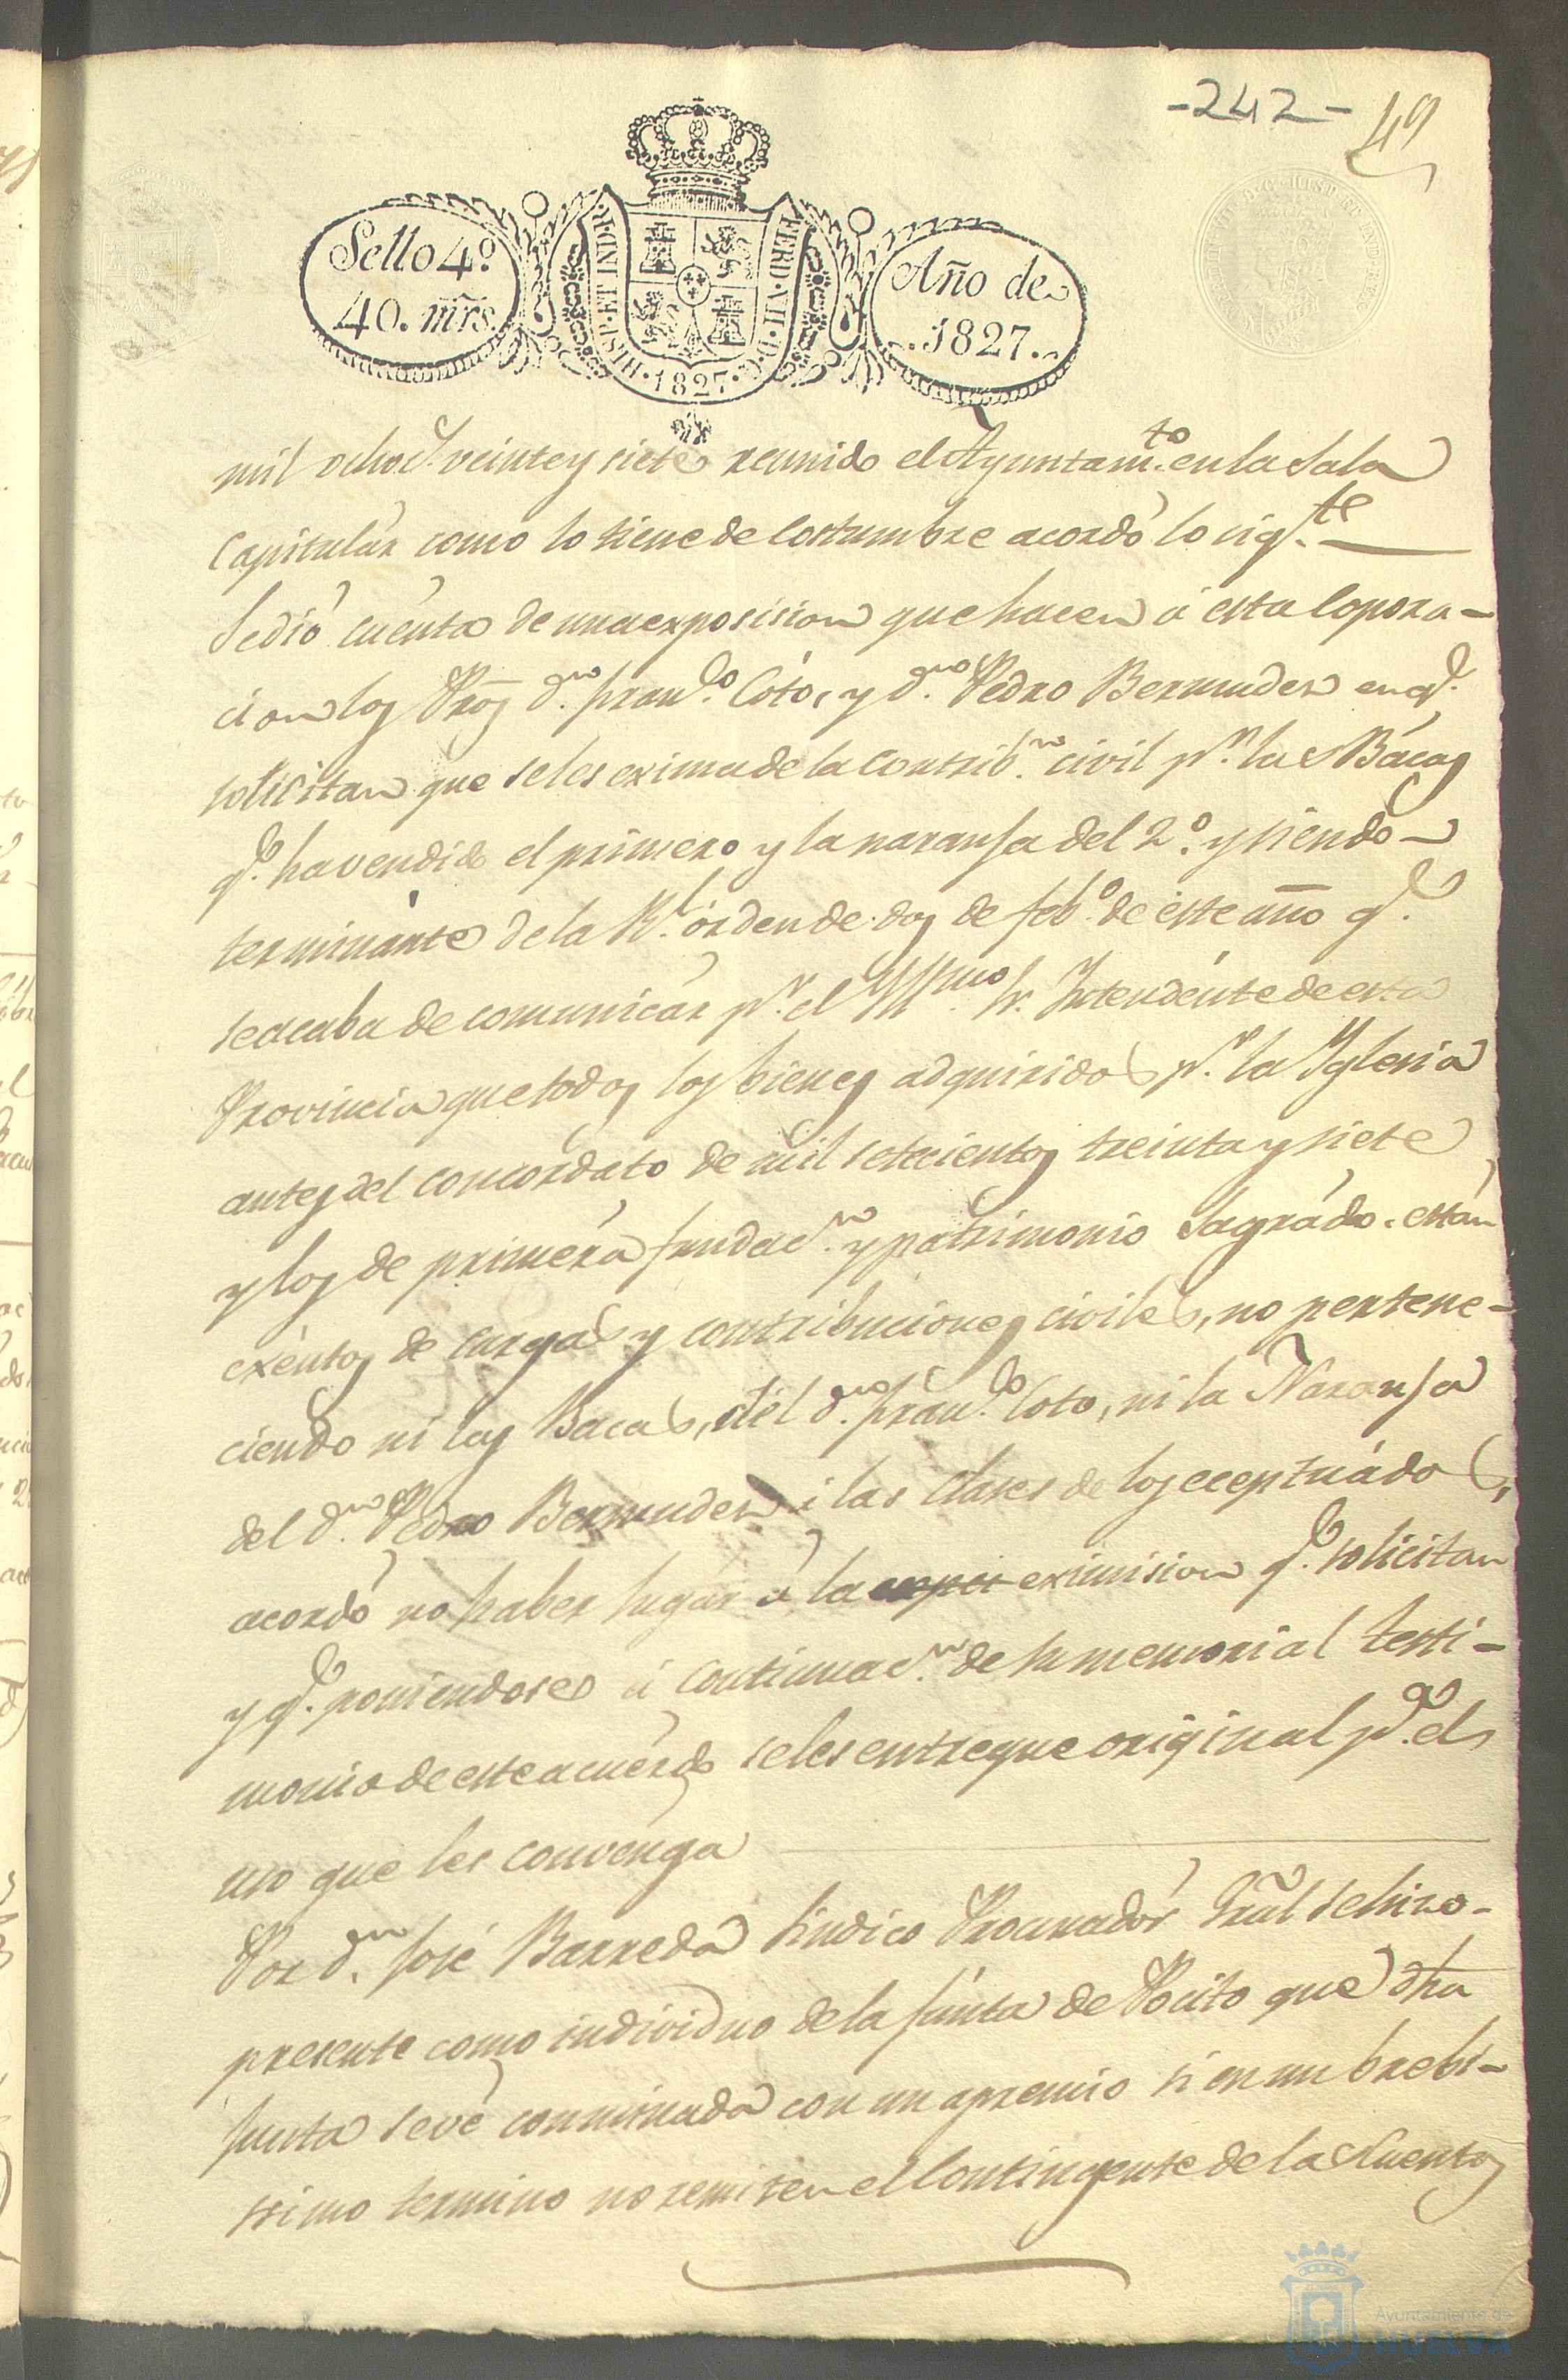 -242- 49
Sello 4º.
40. mrs.
HISP. ET IND. R.
FERD. VII. D. G.
·1827·
Año de
1827.
mil ochoc.s veinte y siete reunido el Ayuntam.to en la Sala
Capitulár como lo tiene de Costumbre acordó lo sig.te
Se dió cuenta de una exposision que hacen á esta Copora-
cion los Pros D.n Fran.co Coto, y D.n Pedro Bermudes en q.e
solicitan que se les exima de la Contrib.n civil p.r las Bacas
q.e ha vendido el primero y la naranja del 2.º y siendo
terminante de la R.l órden de dos de feb.o de este año q.e
se acaba de comunicár p.r el Yllmo. Sr. Yntendente de esta
Provincia que todos los bienes adquiridos p.r la Yglesia
antes del concordato de mil setecientos treinta y siete
y los de primera fundac.n y patrimonio Sagrado. están
exéntos de cargas y contribuciones civiles, no pertene-
ciendo ni las Bacas, del D.n Fran.co Coto, ni la Naranja
del D.n Pedro Bermudes á las Clases de los eceptuádos,
acordó no haber lugar á la eximision q.e solicitan
y q.e poniendose á Continuac.n de su memorial testi-
monio de este acuerdo se les entregue original p.a el
uso que les convenga
Por D.n José Barreda Sindico Procuradór Gral se hizo
presente como individuo de la Junta de Pocito que dha
Junta se vé conminada con un apremio si en un brebi-
ssimo termino no remiten el Contingente de las Cuentas
Ayuntamiento de
HUELVA